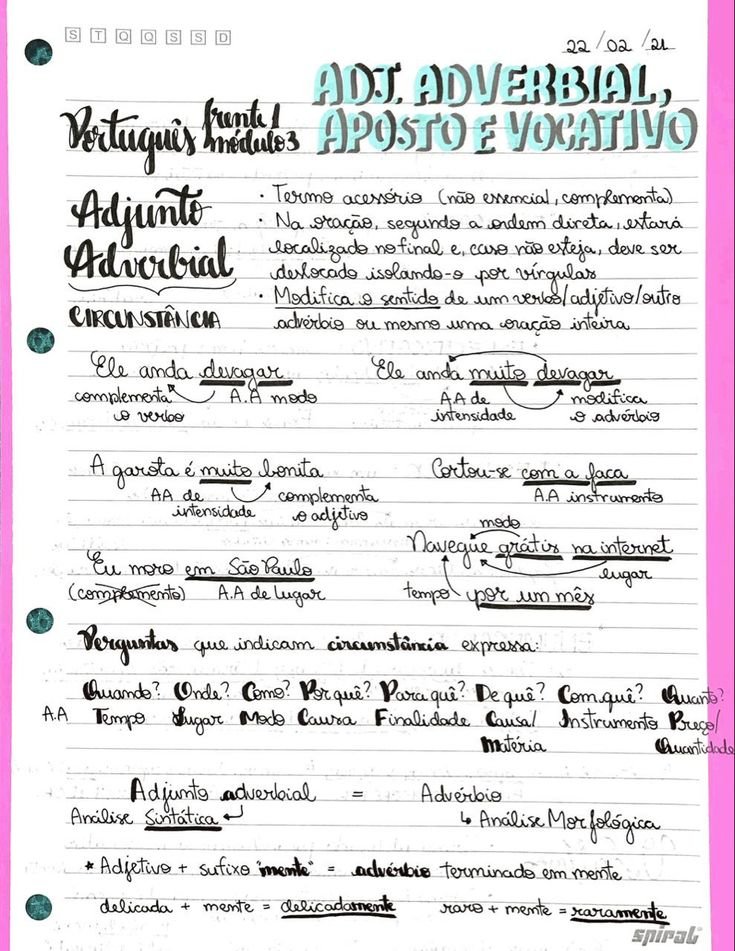 S T Q Q S S D
22/02/21
ADJ. ADVERBIAL,
APOSTO E VOCATIVO
Português frente 1
módulo 3
Adjunto
Adverbial
CIRCUNSTÂNCIA
· Termo acessório (não essencial, complementa)
· Na oração, segundo a ordem direta, estará
localizado no final e, caso não esteja, deve ser
deslocado isolando-o por vírgulas
· Modifica o sentido de um verbo/adjetivo/outro
advérbio ou mesmo uma oração inteira
Ele anda devagar
complementa
o verbo
A.A modo
Ele anda muito devagar
A.A de
intensidade
modifica
o advérbio
A garota é muito bonita
AA de
intensidade
complementa
o adjetivo
Cortou-se com a faca
A.A instrumento
Eu moro em São Paulo
(complemento) A.A de Lugar
modo
Navegue grátis na internet
lugar
tempo por um mês
Perguntas que indicam circunstância expressa:
Quando? Onde? Como? Por quê? Para quê? De quê? Com quê? Quanto?
A.A Tempo Lugar Modo Causa Finalidade Causa/ Instrumento Preço/
Matéria Quantidade
Adjunto adverbial = Advérbio
Análise Sintática ↵ ↳ Análise Morfológica
* Adjetivo + sufixo "mente" = advérbio terminado em mente
delicada + mente = delicadamente raro + mente = raramente
spiral